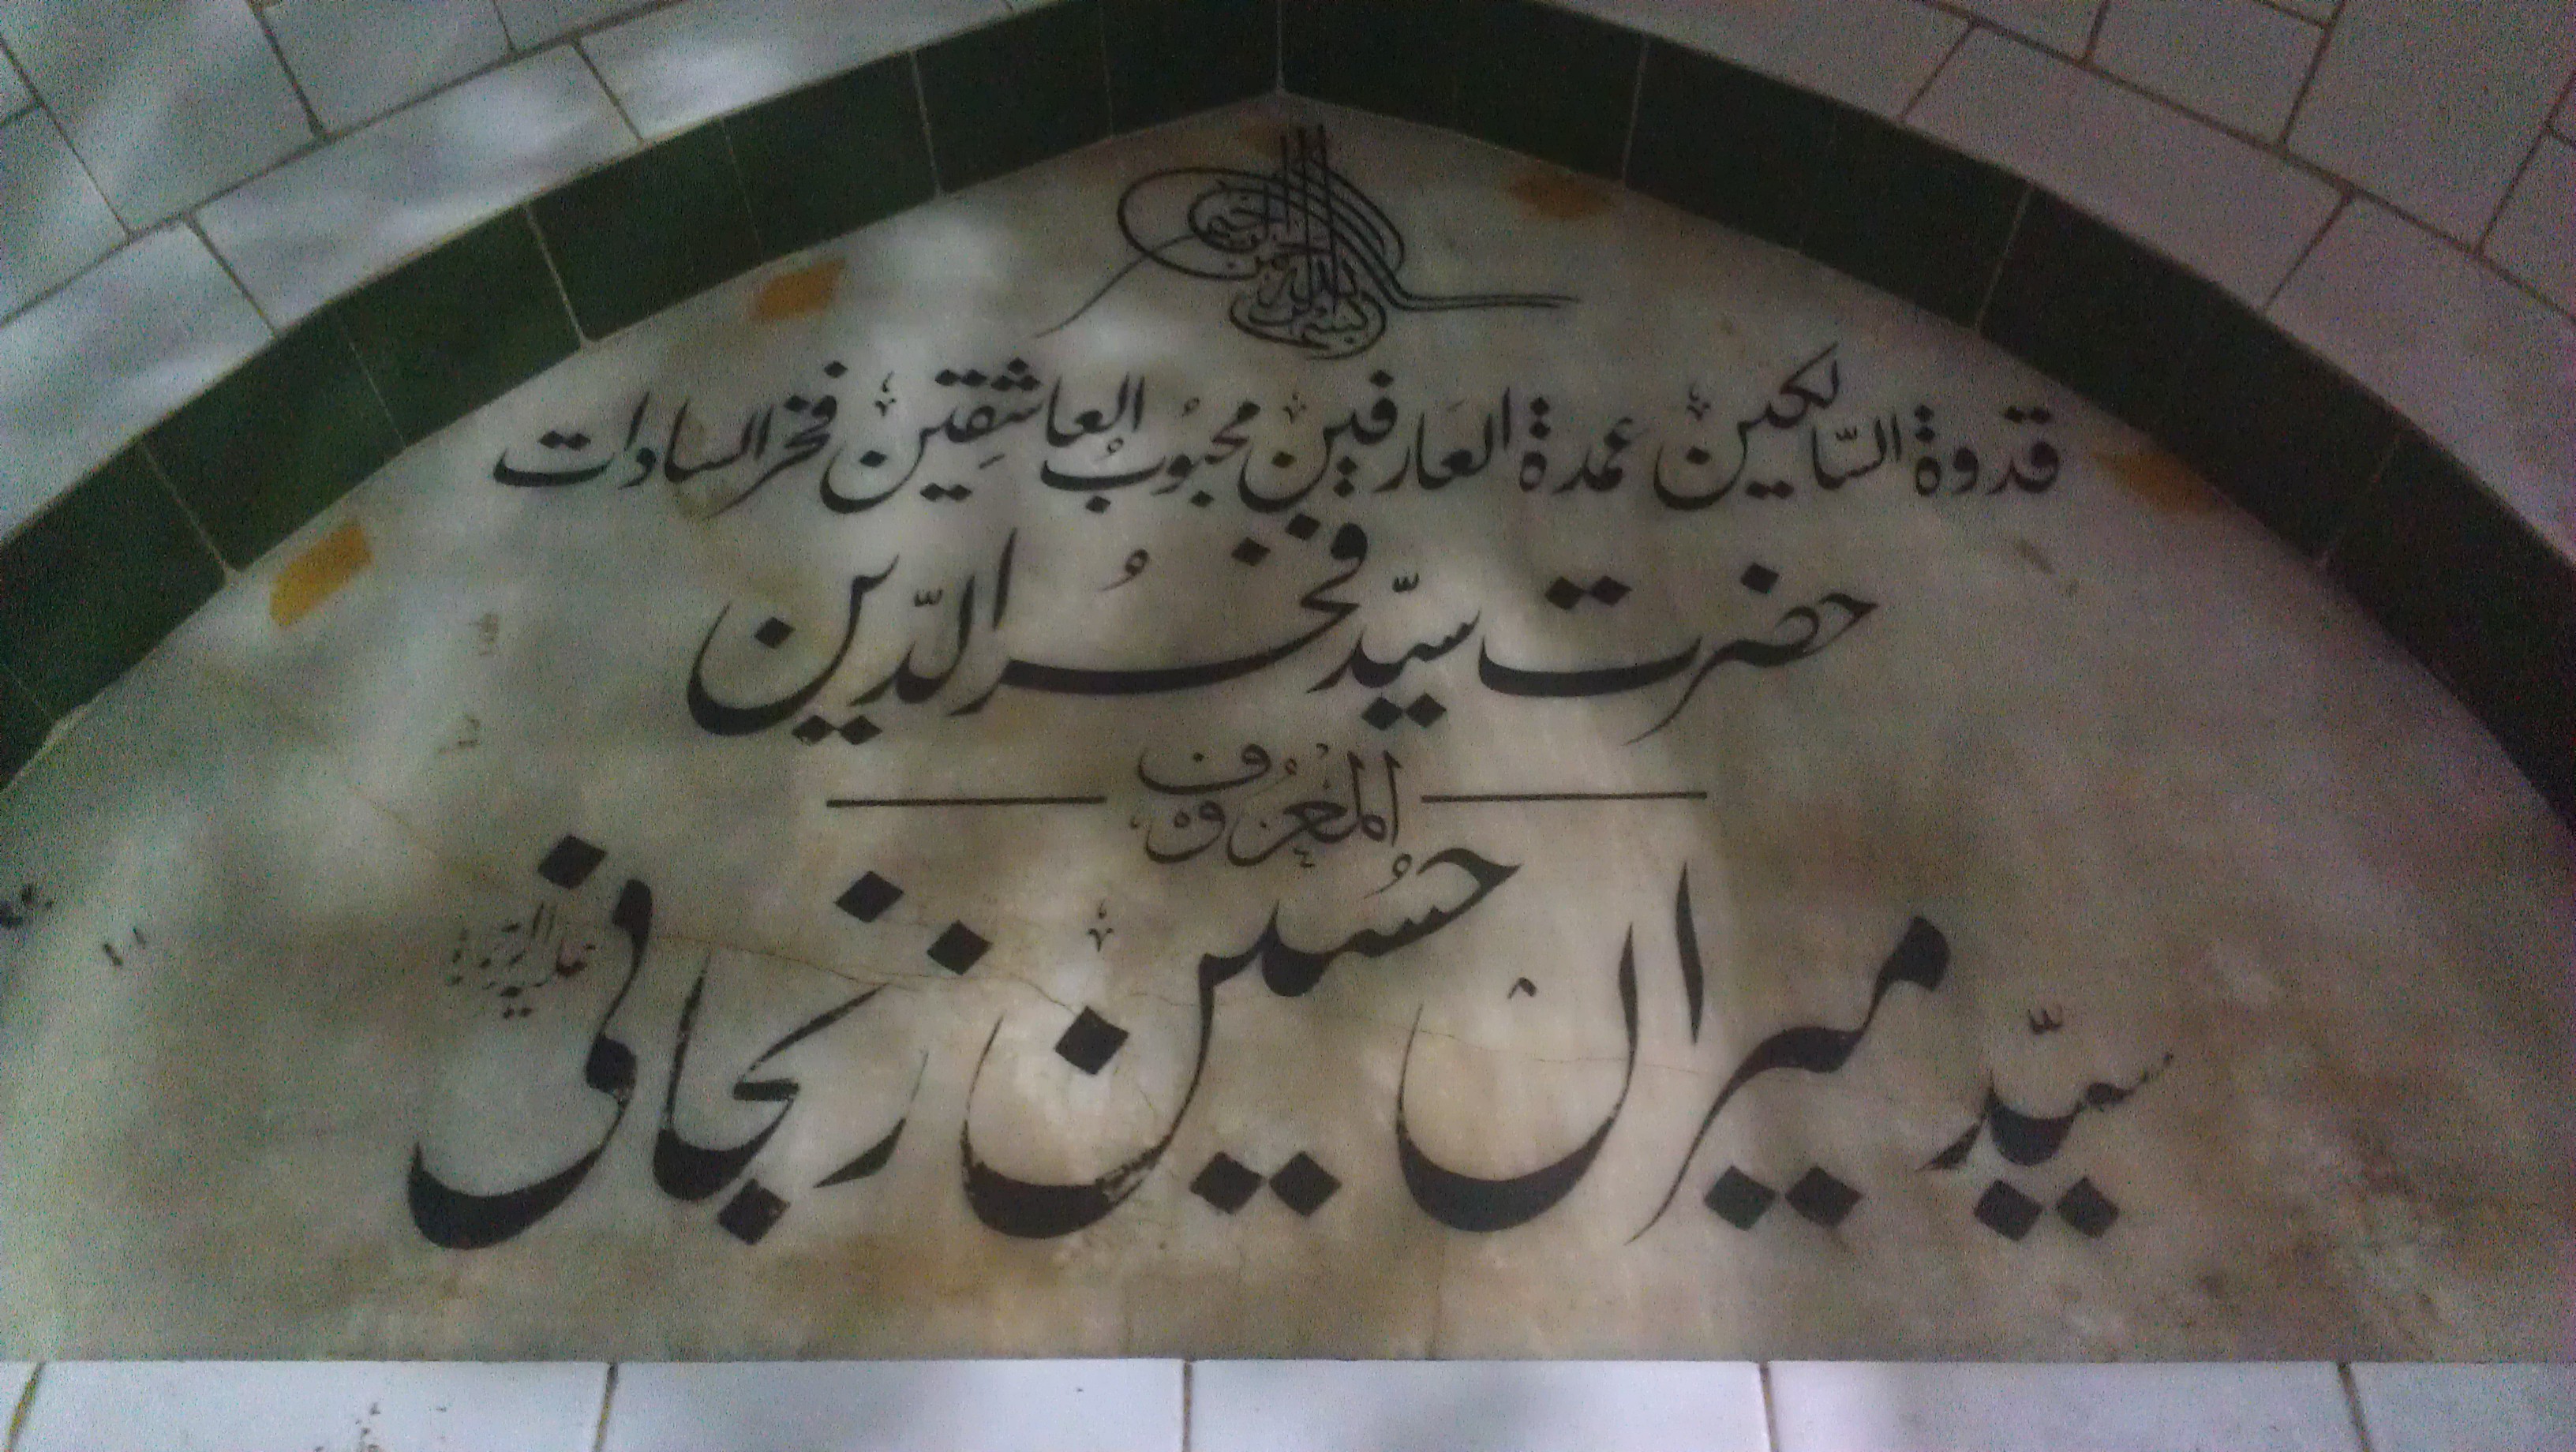 بسم الله الرحمن الرحيم
قدوة السّالكين عمدة العَارفين محبُوبُ العاشقِين فخر السادات
حضرت سیّد فخرُ الدّین
المعرُوف
سیّد میراں حُسین زنجانی علیہ الرحمۃ